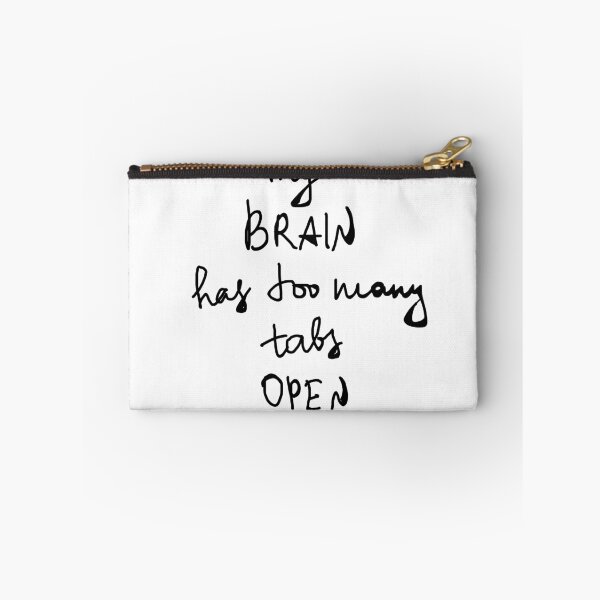 my
BRAIN
has too many
tabs
OPEN